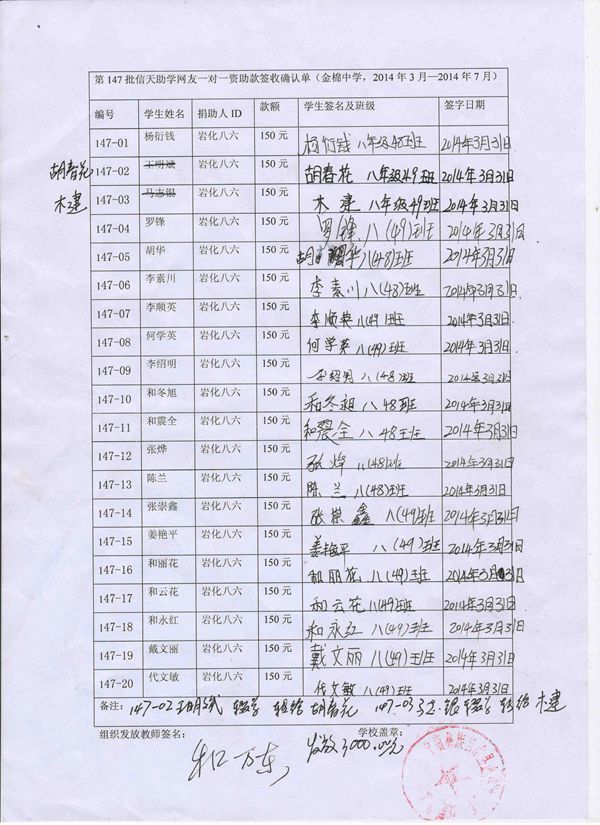 第 147 批信天助学网友一对一资助款签收确认单（金棉中学，2014 年 3 月—2014 年 7 月）
编号 学生姓名 捐助人 ID 款额 学生签名及班级 签字日期
147-01 杨衍钱 岩化八六 150 元 杨衍钱 八年级48班班 2014年3月31日
胡春花 147-02 王明斌 岩化八六 150 元 胡春花 八年级49班班 2014年3月31日
木建 147-03 马志银 岩化八六 150 元 木建 八年级49班班 2014年3月31日
147-04 罗锋 岩化八六 150 元 罗锋 八(49)班班 2014年3月31日
147-05 胡华 岩化八六 150 元 胡华 八(48)班班 2014年3月31日
147-06 李素川 岩化八六 150 元 李素川 八(48)班班 2014年3月31日
147-07 李顺英 岩化八六 150 元 李顺英 八(49)班班 2014年3月31日
147-08 何学英 岩化八六 150 元 何学英 八(49)班班 2014年3月31日
147-09 李绍明 岩化八六 150 元 李绍明 八(48)班班 2014年3月31日
147-10 和冬旭 岩化八六 150 元 和冬旭 八48班 2014年3月31日
147-11 和震全 岩化八六 150 元 和震全 八48班班 2014年3月31日
147-12 张烨 岩化八六 150 元 张烨 八(48)班班 2014年3月31日
147-13 陈兰 岩化八六 150 元 陈兰 八(48)班班 2014年3月31日
147-14 张崇鑫 岩化八六 150 元 张崇鑫 八(49)班班 2014年3月31日
147-15 姜艳平 岩化八六 150 元 姜艳平 八(49)班班 2014年3月31日
147-16 和丽花 岩化八六 150 元 和丽花 八(49)班班 2014年3月31日
147-17 和云花 岩化八六 150 元 和云花 八(49)班班 2014年3月31日
147-18 和永红 岩化八六 150 元 和永红 八(49)班班 2014年3月31日
147-19 戴文丽 岩化八六 150 元 戴文丽 八(49)班班 2014年3月31日
147-20 代文敏 岩化八六 150 元 代文敏 八(49)班班 2014年3月31日
备注： 147-02 王明斌 辍学 转给 胡春花 147-03 马志银 辍学 转给 木建
组织发放教师签名： 学校盖章：
和万东 发放3000.00元